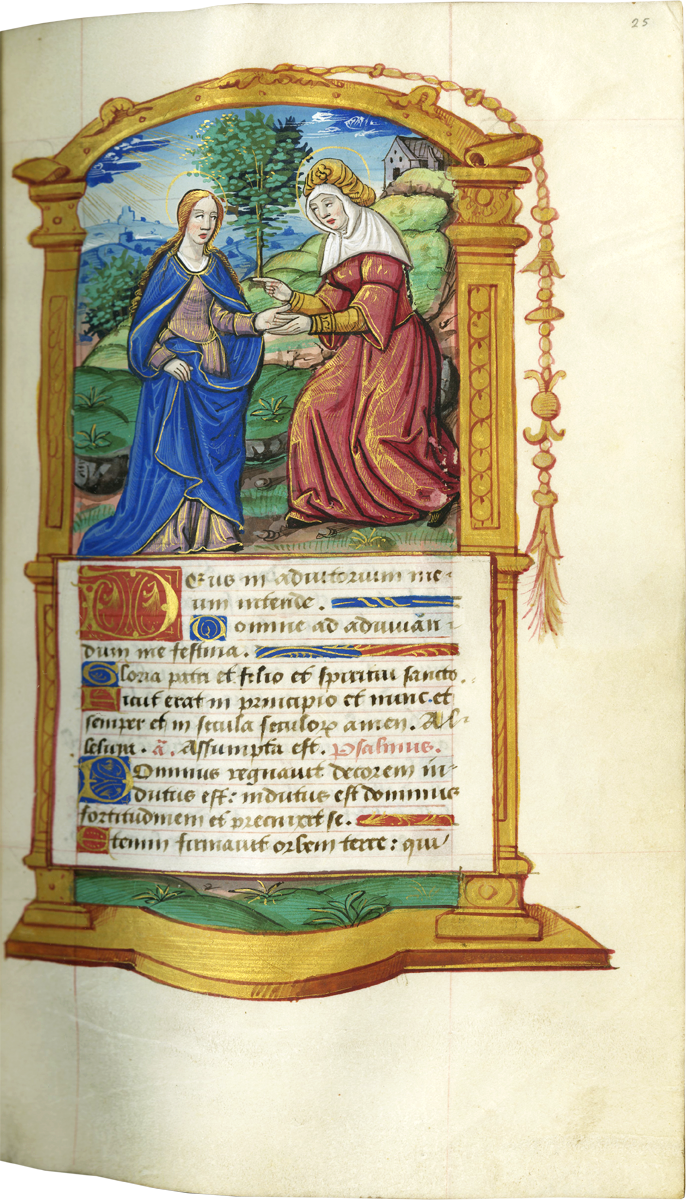 25
Deus in adiutorium me-
um intende.
Domine ad adiuvãn-
dum me festina.
Gloria patri et filio et spiritui sancto.
Sicut erat in principio et nunc et
semper et in secula seculoꝝ amen. Al-
leluya. ã. Assumpta est. Psalmus.
Dominus regnavit decorem in-
dutus est: indutus est dominus
fortitudinem et precinxit se.
Etenim firmavit orbem terre: qui